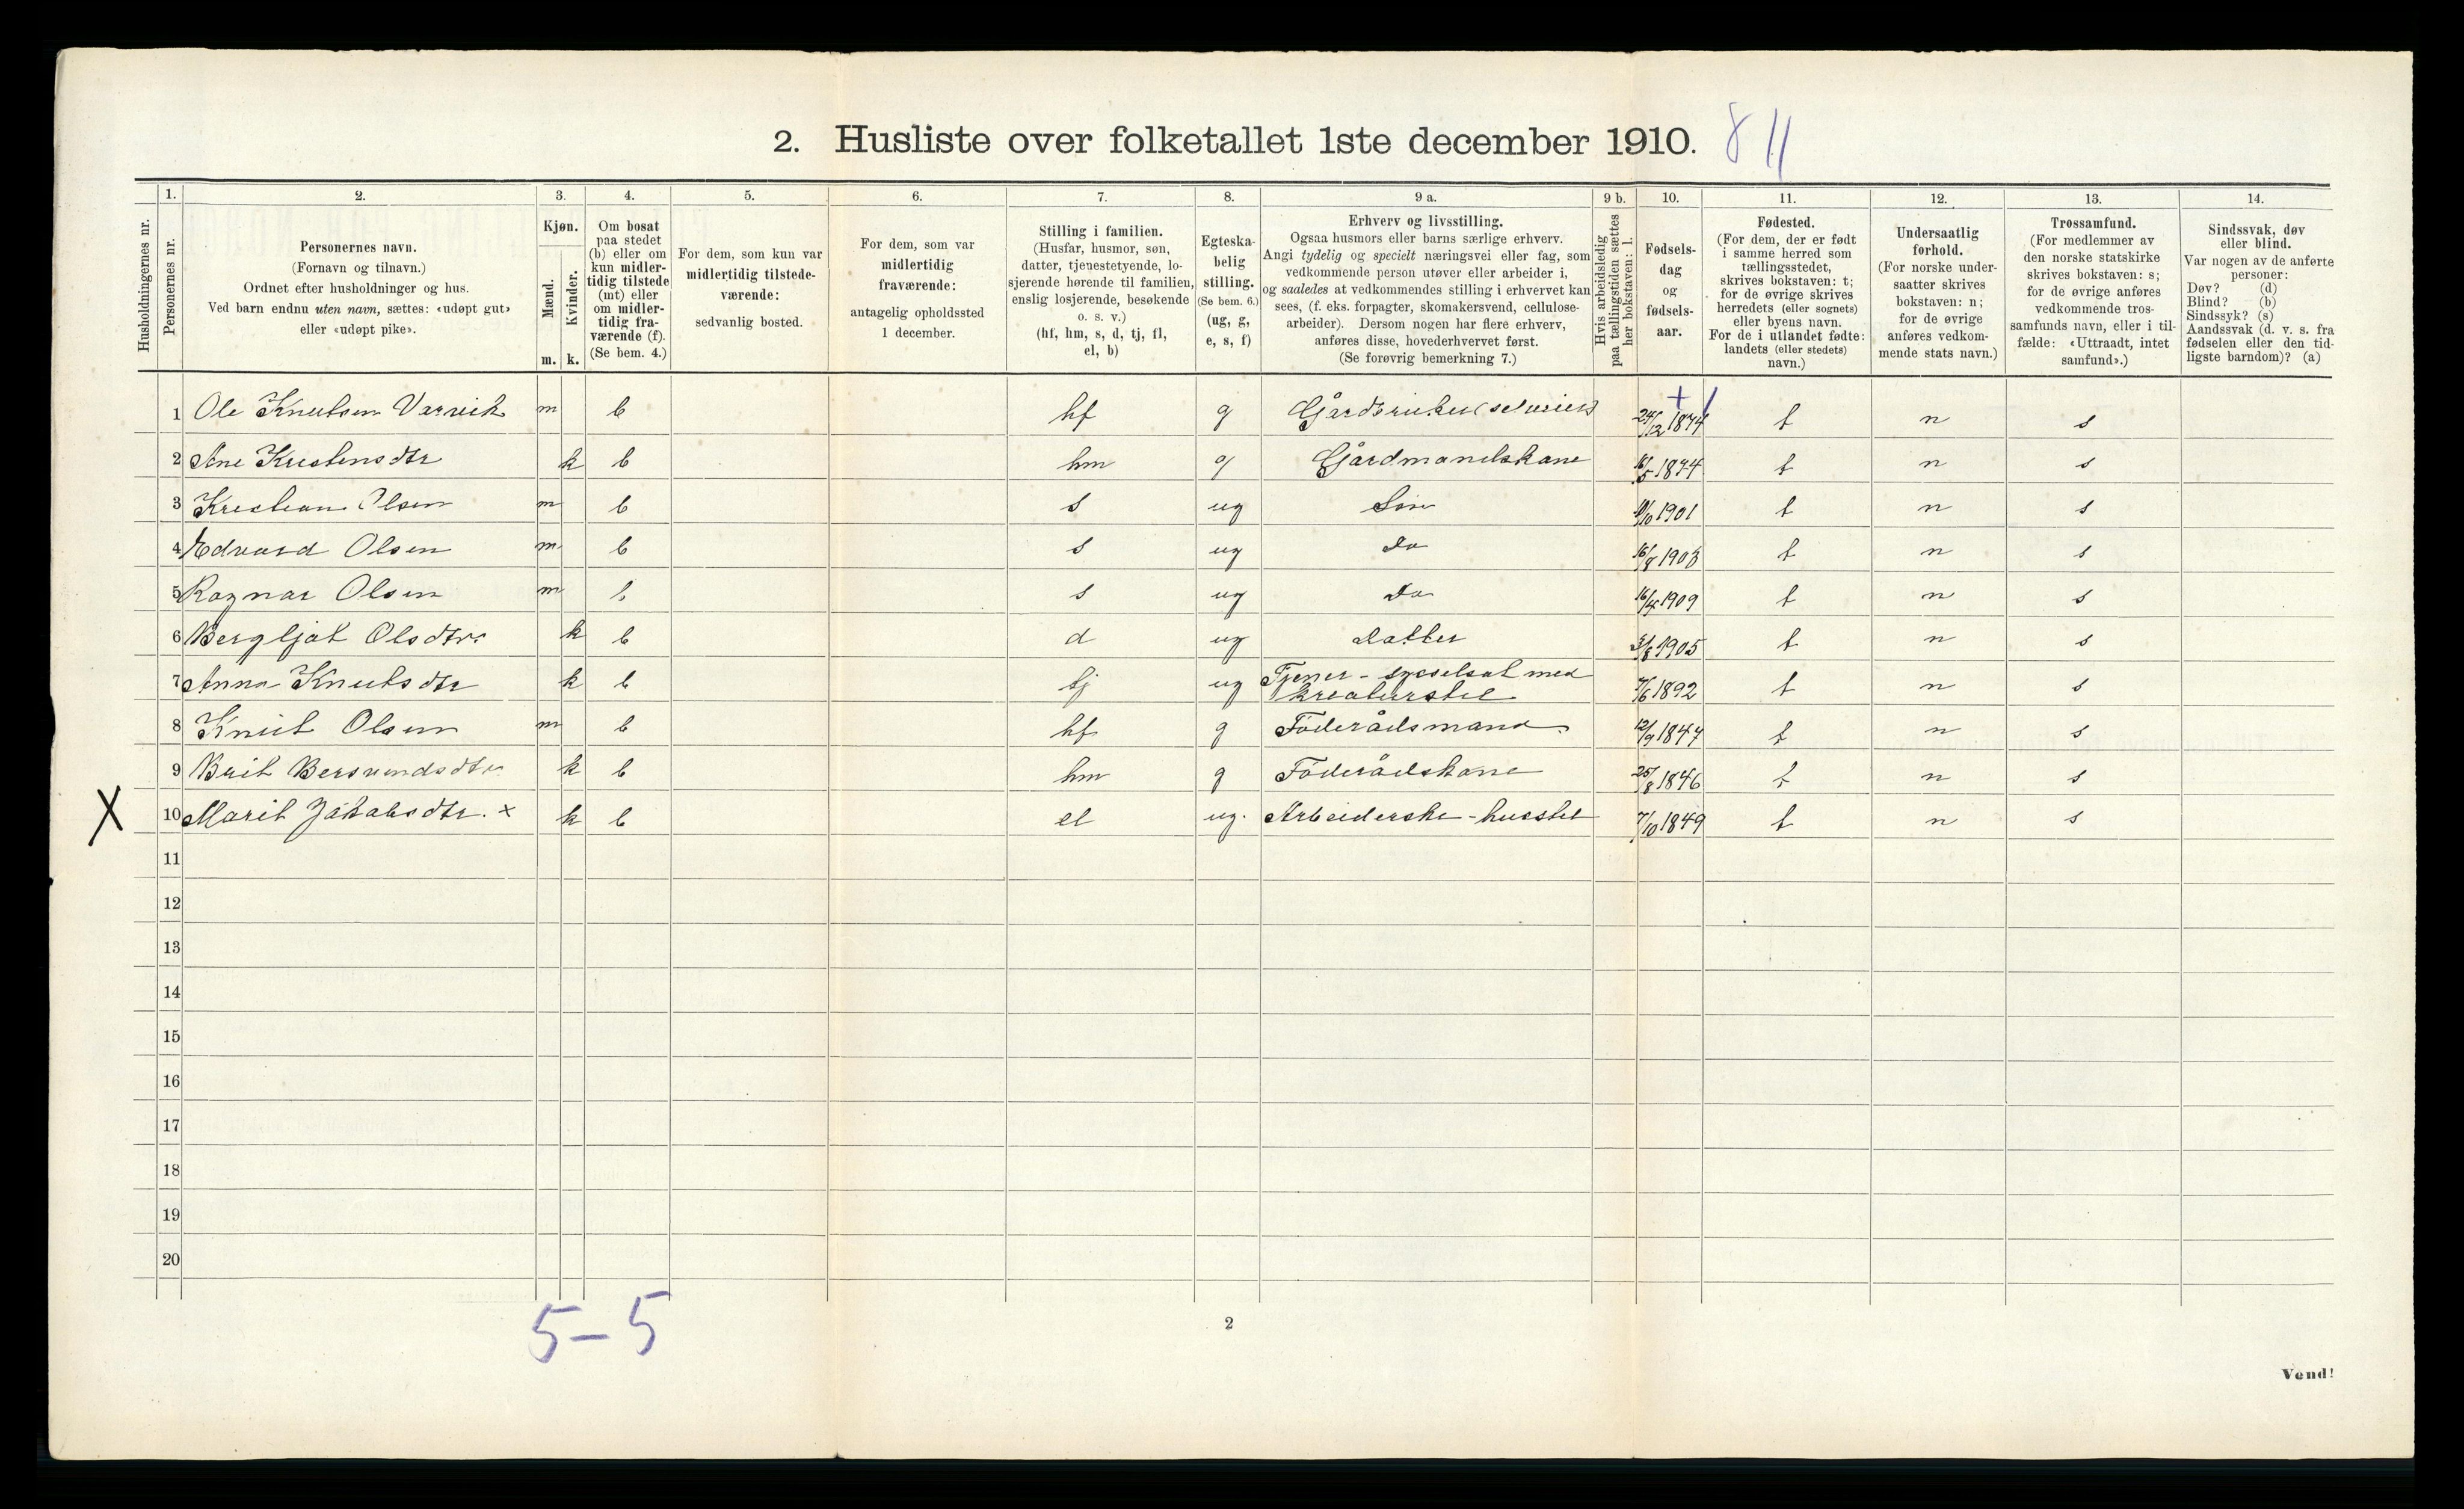 2. Husliste over folketallet 1ste december 1910. 811
Husholdningernes nr.
1. Personernes nr.
2. Personernes navn.
(Fornavn og tilnavn.)
Ordnet efter husholdninger og hus.
Ved barn endnu uten navn, sættes: «udøpt gut»
eller «udøpt pike».
3. Kjøn.
Mænd. m.
Kvinder. k.
4. Om bosat
paa stedet
(b) eller om
kun midler-
tidig tilstede
(mt) eller
om midler-
tidig fra-
værende (f).
(Se bem. 4.)
5. For dem, som kun var
midlertidig tilstede-
værende:
sedvanlig bosted.
6. For dem, som var
midlertidig
fraværende:
antagelig opholdssted
1 december.
7. Stilling i familien.
(Husfar, husmor, søn,
datter, tjenestetyende, lo-
sjerende hørende til familien,
enslig losjerende, besøkende
o. s. v.)
(hf, hm, s, d, tj, fl,
el, b)
8. Egteska-
belig
stilling.
(Se bem. 6.)
(ug, g,
e, s, f)
9 a. Erhverv og livsstilling.
Ogsaa husmors eller barns særlige erhverv.
Angi tydelig og specielt næringsvei eller fag, som
vedkommende person utøver eller arbeider i,
og saaledes at vedkommendes stilling i erhvervet kan
sees, (f. eks. forpagter, skomakersvend, cellulose-
arbeider). Dersom nogen har flere erhverv,
anføres disse, hovederhvervet først.
(Se forøvrig bemerkning 7.)
9 b. Hvis arbeidsledig
paa tællingstiden sættes
her bokstaven: l.
10. Fødsels-
dag
og
fødsels-
aar.
11. Fødested.
(For dem, der er født
i samme herred som
tællingsstedet,
skrives bokstaven: t;
for de øvrige skrives
herredets (eller sognets)
eller byens navn.
For de i utlandet fødte:
landets (eller stedets)
navn.)
12. Undersaatlig
forhold.
(For norske under-
saatter skrives
bokstaven: n;
for de øvrige
anføres vedkom-
mende stats navn.)
13. Trossamfund.
(For medlemmer av
den norske statskirke
skrives bokstaven: s;
for de øvrige anføres
vedkommende tros-
samfunds navn, eller i til-
fælde: «Uttraadt, intet
samfund».)
14. Sindssvak, døv
eller blind.
Var nogen av de anførte
personer:
Døv? (d)
Blind? (b)
Sindssyk? (s)
Aandssvak (d. v. s. fra
fødselen eller den tid-
ligste barndom)? (a)
1 Ole Knutsen Varvik m b hf g Gårdbruker (selveier) 24/12 1874 t n s
2 Ane Kristensdtr k b hm g Gårdmandskone /5 1874 t n s
3 Kristian Olsen m b s ug Søn /10 1901 t n s
4 Edvard Olsen m b s ug Do 16/8 1903 t n s
5 Ragnar Olsen m b s ug Do 16/4 1909 t n s
6 Bergljot Olsdtr. k b d ug Datter /8 1905 t n s
7 Anna Knutsdtr k b tj ug Tjener - sysselsat med
kreaturstel /6 1892 t n s
8 Knut Olsen m b hf g Föderådsmand. 12/9 1847 t n s
9 Brit Bersvendsdtr. k b hm g Föderådskone 25/8 1846 t n s
X 10 Marit Jakobsdtr. x k b el ug. Arbeiderske - husstel 7/10 1849 t n s
11
12
13
14
15
16
17
18
19
20
5-5
2
Vend!